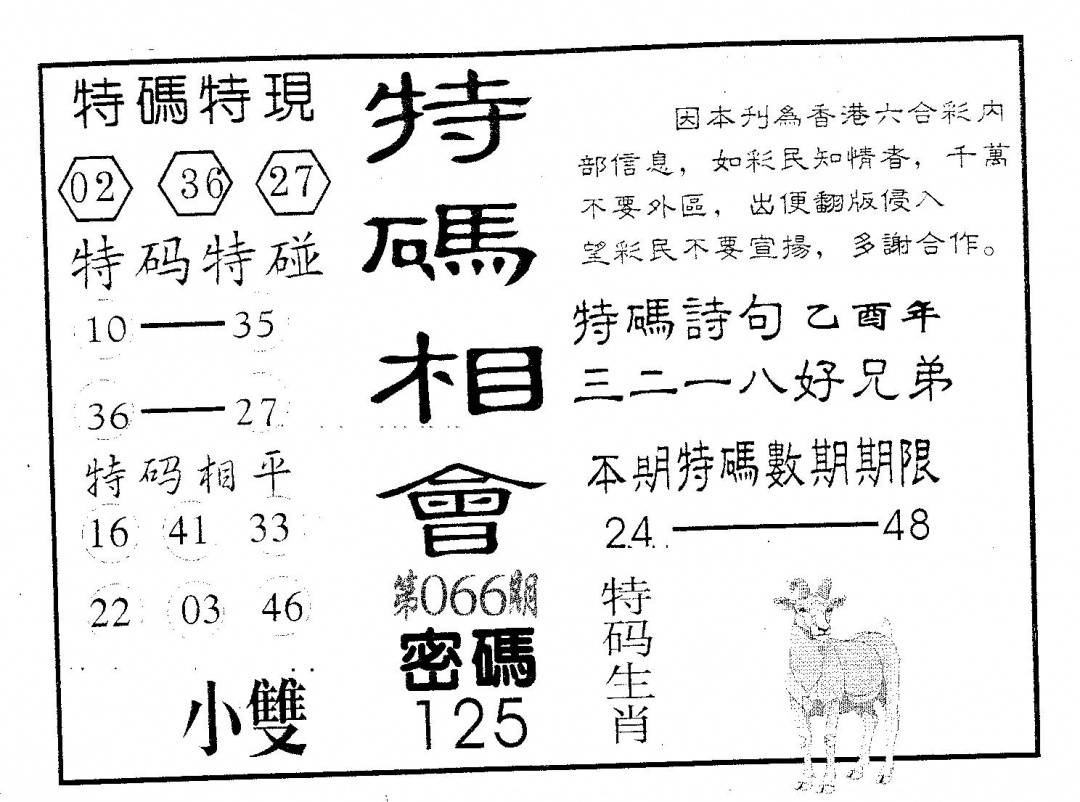 特碼特現
02 36 27
特码特碰
10——35
36——27
特码相平
16 41 33
22 03 46
小雙
特碼相會
第066期
密碼
125
因本刊為香港六合彩内
部信息，如彩民知情者，千萬
不要外區，出便翻版侵入
望彩民不要宣揚，多謝合作。
特碼詩句乙酉年
三二一八好兄弟
本期特碼數期期限
24——48
特码生肖